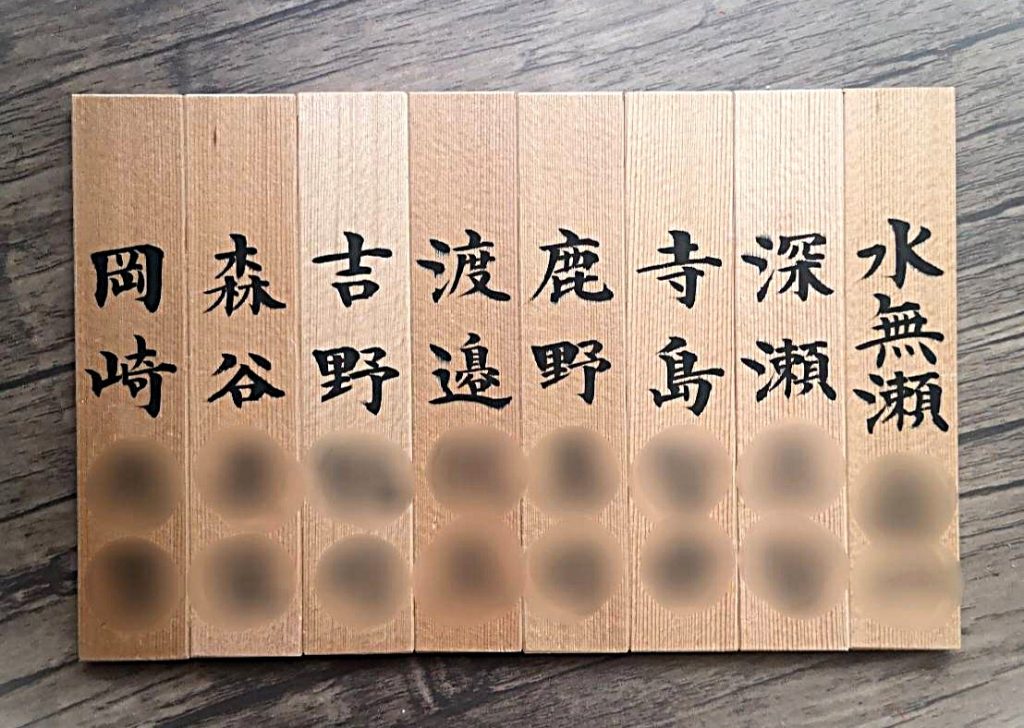 水無瀬
深瀬
寺島
鹿野
渡邊
吉野
森谷
岡崎